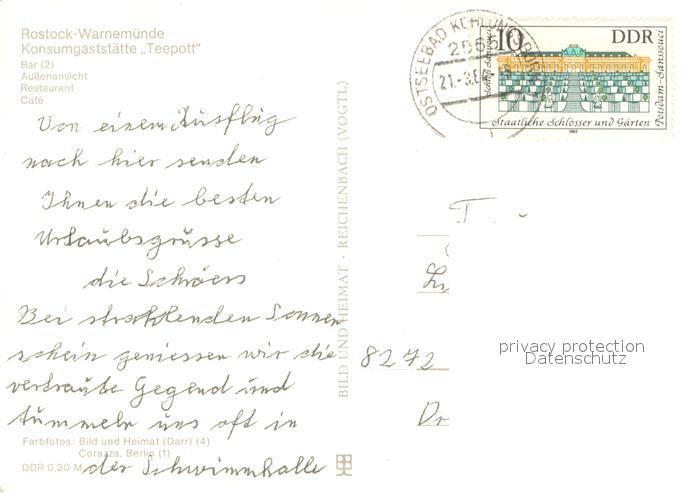 Rostock-Warnemünde
Konsumgaststätte „Teepott"
Bar (2)
Außenansicht
Restaurant
Café
Von einem Ausflug
nach hier senden
Ihnen die besten
Urlaubsgrüsse
die Schröers
Bei strahlenden Sonnen
schein geniessen wir die
vertraute Gegend und
tümmeln uns oft in
der Schwimmhalle
Farbfotos: Bild und Heimat (Darr) (4)
Corazza, Berlin (1)
DDR 0,20 M
BILD UND HEIMAT · REICHENBACH (VOGTL)
OSTSEEBAD KÜHLUNGSBORN
2565
21.-3.8
10
DDR
Schloß Sanssouci
Potsdam-Sanssouci
Staatliche Schlösser und Gärten
1983
8272
Dr
privacy protection
Datenschutz